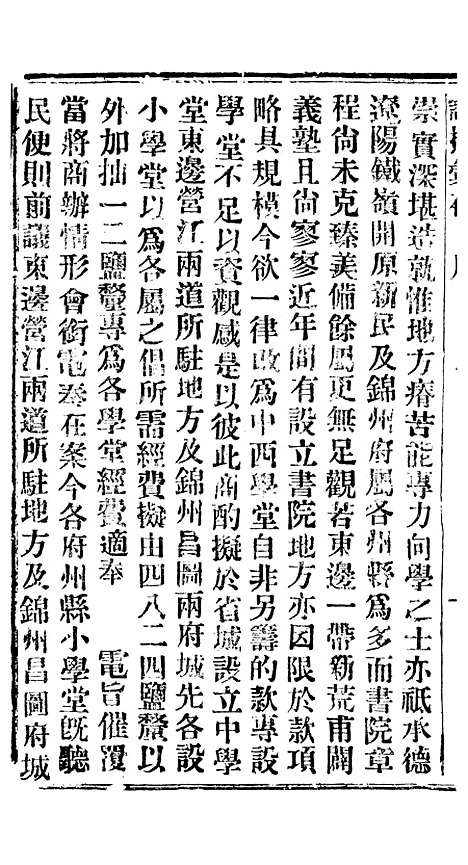 崇實深堪造就惟地方瘠苦能專力向學之士亦祇承德
遼陽鐵嶺開原新民及錦州府屬各州縣爲多而書院章
程尙未克臻美備餘屬更無足觀若東邊一帶新荒甫闢
義塾且尙寥寥近年間有設立書院地方亦因限於款項
略具規模今欲一律改爲中西學堂自非另籌的款專設
學堂不足以資觀感是以彼此商酌擬於省城設立中學
堂東邊營江兩道所駐地方及錦州昌圖兩府城先各設
小學堂以爲各屬之倡所需經費擬由四八二四鹽釐以
外加抽一二鹽釐專爲各學堂經費適奉　電旨催覆
當將商辦情形會銜電奏在案今各府州縣小學堂旣聽
民便則前議東邊營江兩道所駐地方及錦州昌圖府城